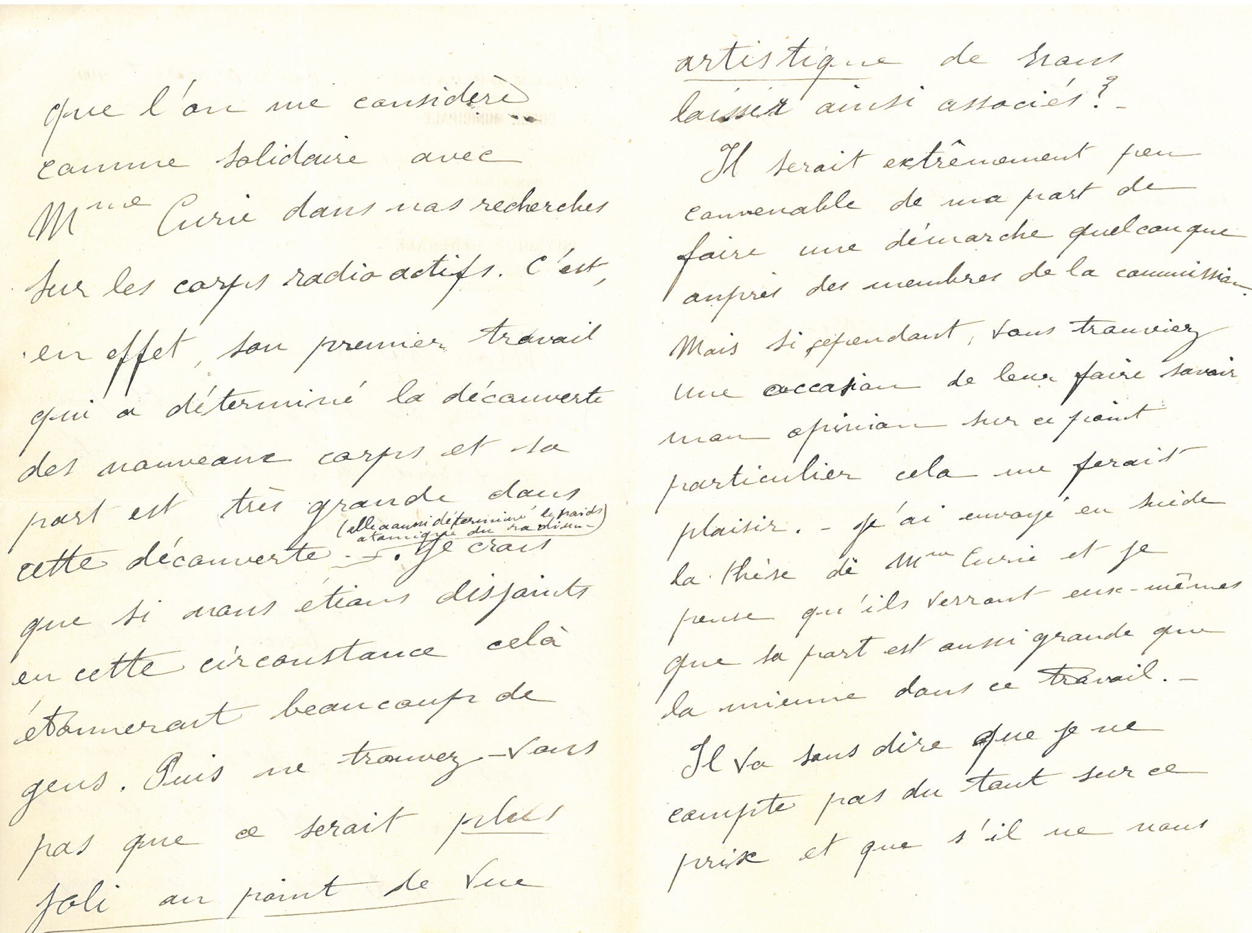 que l'on me considère
comme solidaire avec
Mme Curie dans nos recherches
sur les corps radioactifs. C'est,
en effet, son premier travail
qui a déterminé la découverte
des nouveaux corps et sa
part est très grande dans
(elle a aussi déterminé le poids
atomique du radium)
cette découverte. Je crois
que si nous étions disjoints
en cette circonstance celà
étonnerait beaucoup de
gens. Puis ne trouvez-vous
pas que ce serait plus
joli au point de vue
artistique de nous
laisser ainsi associés? -
Il serait extrêmement peu
convenable de ma part de
faire une démarche quelconque
auprès des membres de la commission.
Mais si cependant, vous trouviez
une occasion de leur faire savoir
mon opinion sur ce point
particulier cela me ferait
plaisir. - J'ai envoyé en Suède
la thèse de Mme Curie et je
pense qu'ils verront eux-mêmes
que sa part est aussi grande que
la mienne dans ce travail. -
Il va sans dire que je ne
compte pas du tout sur ce
prix et que s'il ne nous